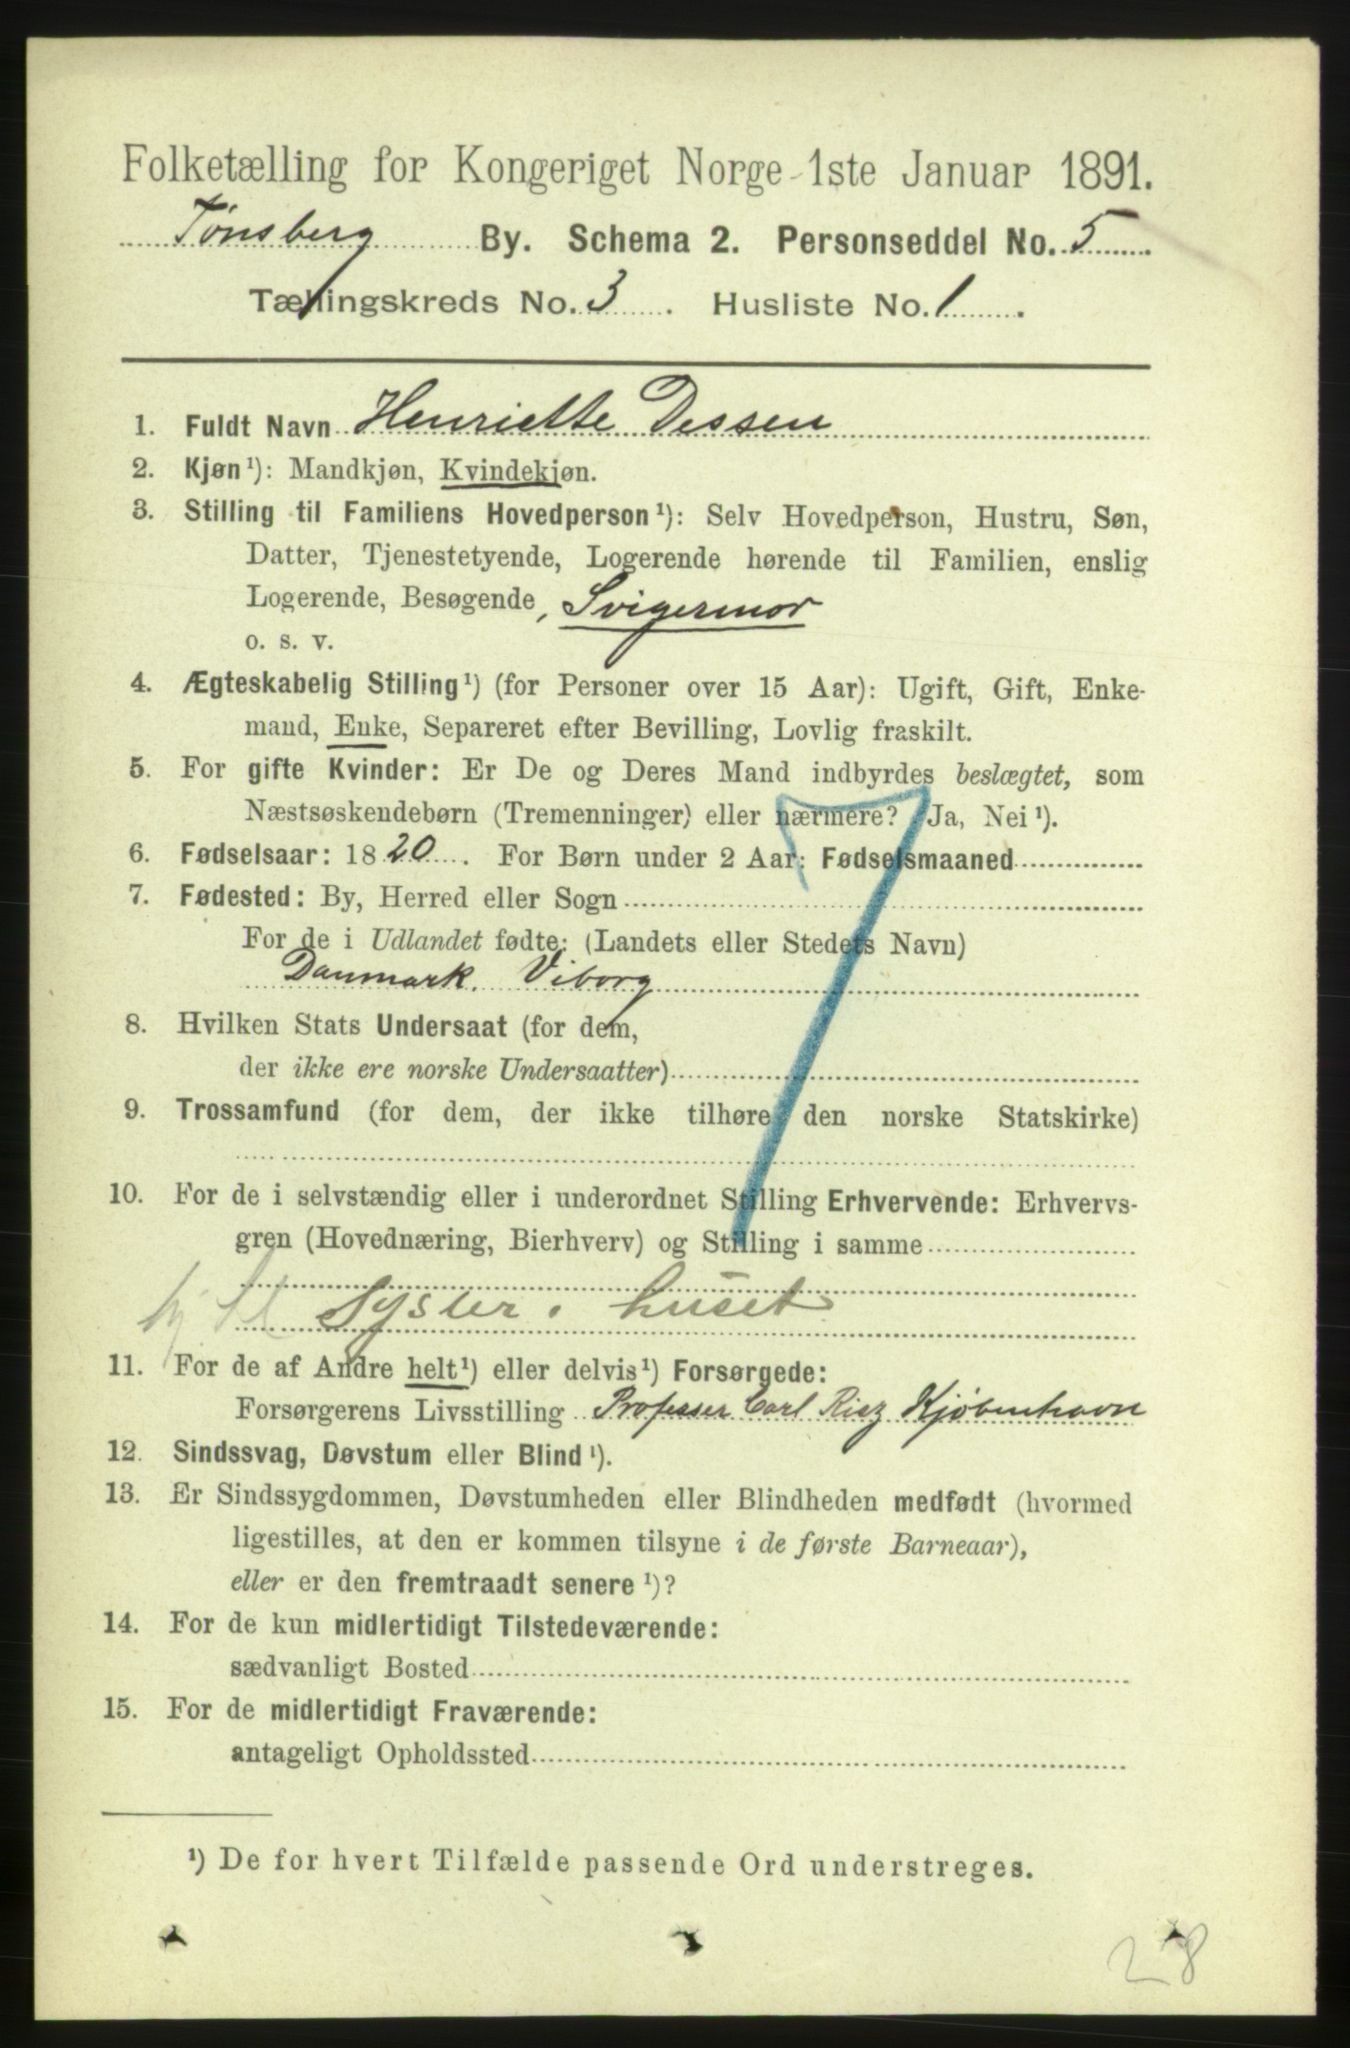 Folketælling for Kongeriget Norge 1ste Januar 1891.
Tønsberg By. Schema 2. Personseddel No. 5
Tællingskreds No. 3. Husliste No. 1.
1. Fuldt Navn Henriette Dessen
2. Kjøn¹): Mandkjøn, Kvindekjøn.
3. Stilling til Familiens Hovedperson¹): Selv Hovedperson, Hustru, Søn,
Datter, Tjenestetyende, Logerende hørende til Familien, enslig
Logerende, Besøgende, Svigermor
o. s. v.
4. Ægteskabelig Stilling¹) (for Personer over 15 Aar): Ugift, Gift, Enke-
mand, Enke, Separeret efter Bevilling, Lovlig fraskilt.
5. For gifte Kvinder: Er De og Deres Mand indbyrdes beslægtet, som
Næstsøskendebørn (Tremenninger) eller nærmere? Ja, Nei¹).
6. Fødselsaar: 1820. For Børn under 2 Aar: Fødselsmaaned
7. Fødested: By, Herred eller Sogn
For de i Udlandet fødte: (Landets eller Stedets Navn)
Danmark. Viborg
8. Hvilken Stats Undersaat (for dem,
der ikke ere norske Undersaatter)
9. Trossamfund (for dem, der ikke tilhøre den norske Statskirke)
10. For de i selvstændig eller i underordnet Stilling Erhvervende: Erhvervs-
gren (Hovednæring, Bierhverv) og Stilling i samme
Sysler i huset
11. For de af Andre helt¹) eller delvis¹) Forsørgede:
Forsørgerens Livsstilling Professer Carl Kjøbenhavn
12. Sindssvag, Døvstum eller Blind¹).
13. Er Sindssygdommen, Døvstumheden eller Blindheden medfødt (hvormed
ligestilles, at den er kommen tilsyne i de første Barneaar),
eller er den fremtraadt senere¹)?
14. For de kun midlertidigt Tilstedeværende:
sædvanligt Bosted
15. For de midlertidigt Fraværende:
antageligt Opholdssted
¹) De for hvert Tilfælde passende Ord understreges.
28